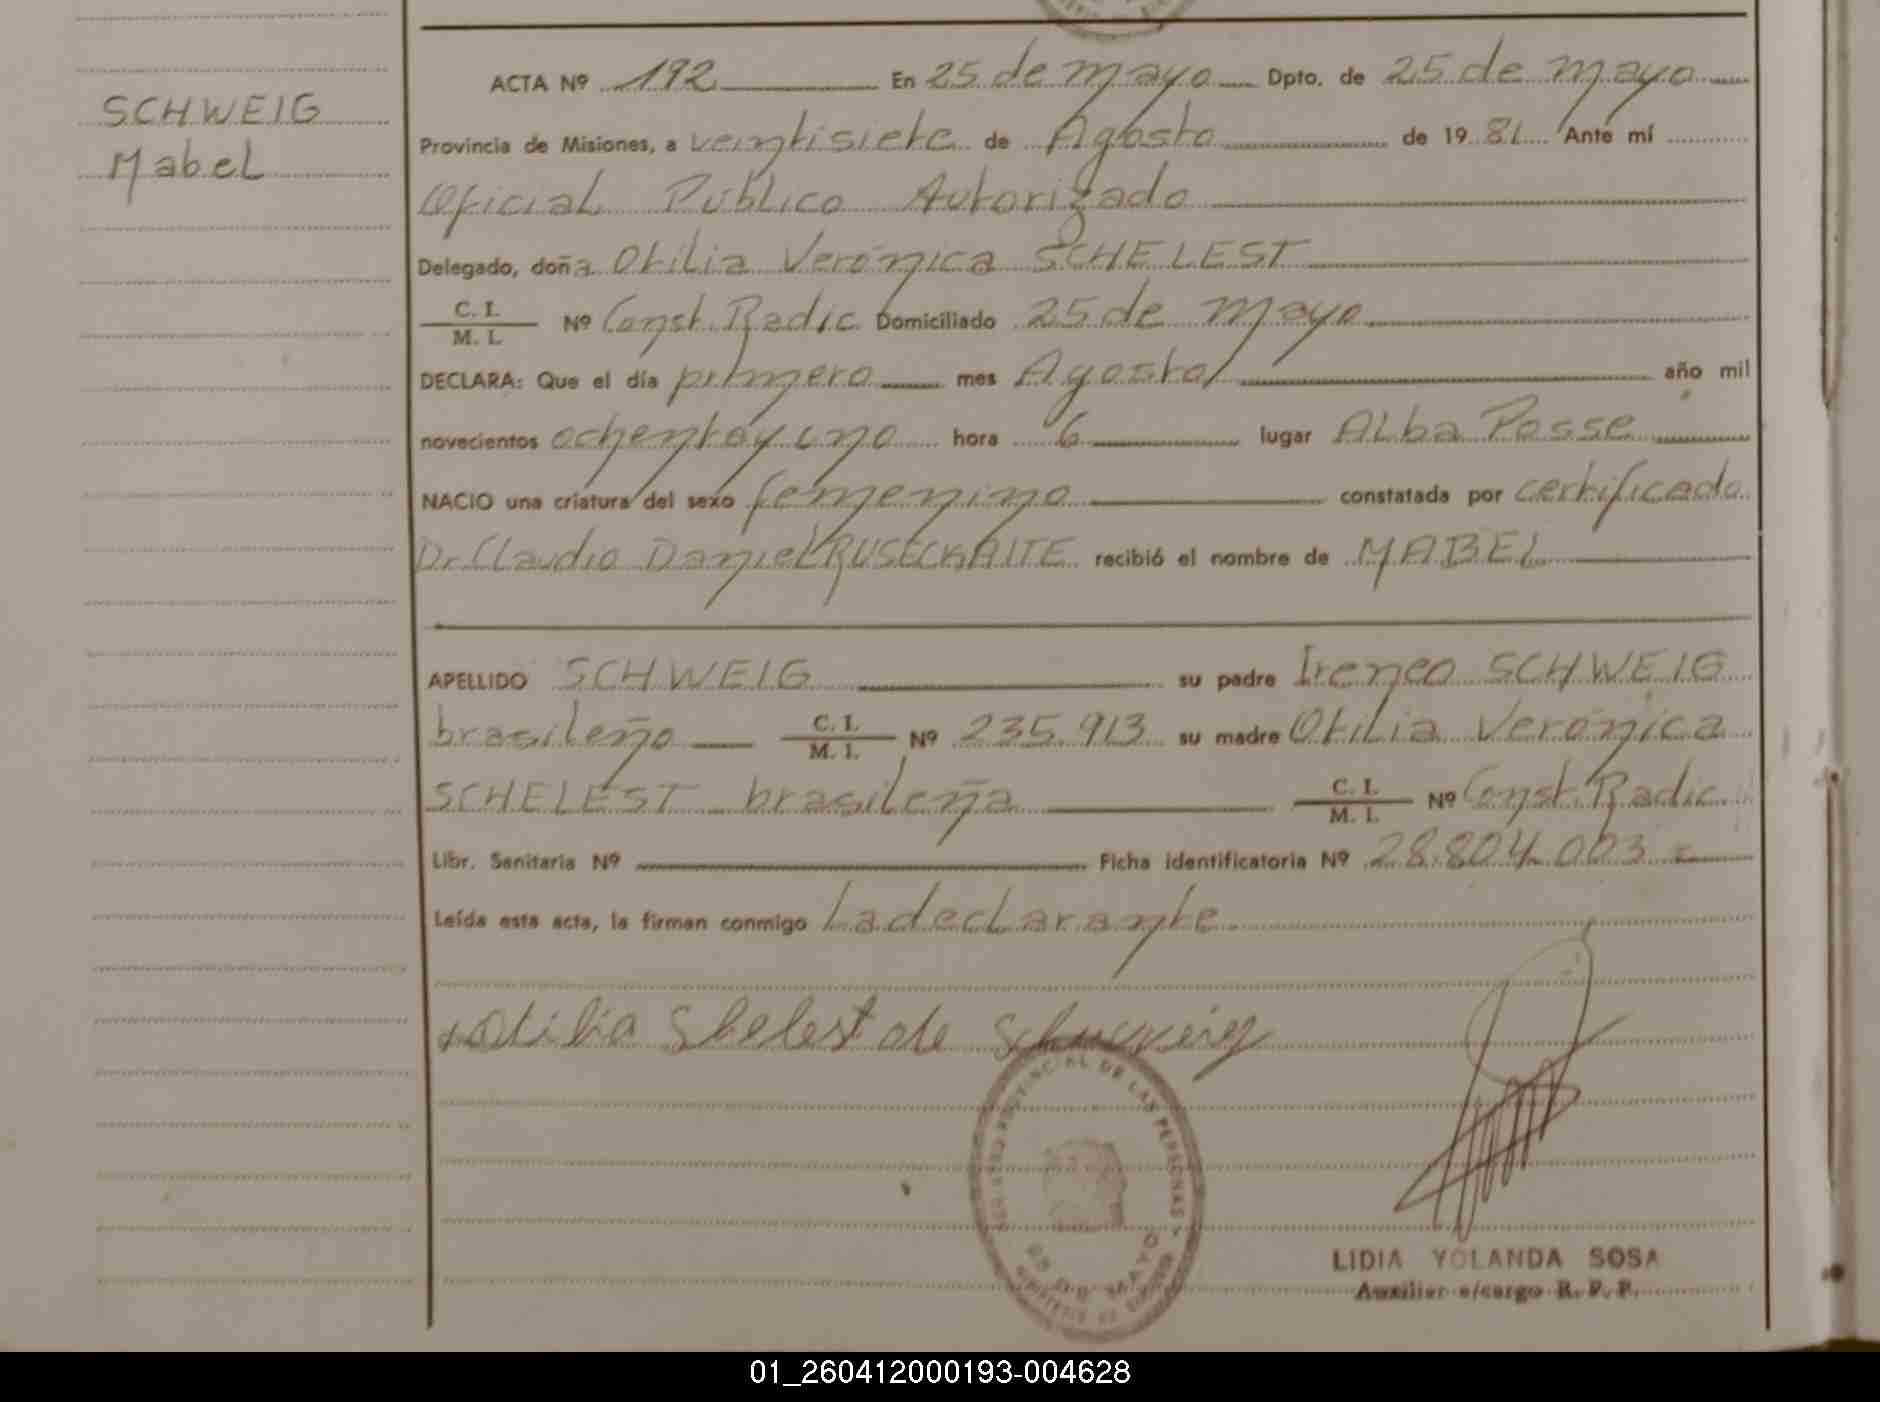 SCHWEIG
Mabel
ACTA Nº 192 En 25 de mayo Dpto. de 25 de mayo
Provincia de Misiones, a veintisiete de Agosto de 1981 Ante mí
Oficial Publico Autorizado
Delegado, doña Otilia Verónica SCHELEST
C. I. / M. I. Nº Const. Radic Domiciliado 25 de mayo
DECLARA: Que el día primero mes Agosto año mil
novecientos ochenta y uno hora 6 lugar Alba Posse
NACIO una criatura del sexo femenino constatada por certificado
Dr. Claudio Daniel RUSECKAITE recibió el nombre de MABEL
APELLIDO SCHWEIG su padre Ireneo SCHWEIG
brasileño C. I. / M. I. Nº 235.913 su madre Otilia Verónica
SCHELEST brasileña C. I. / M. I. Nº Const. Radic
Libr. Sanitaria Nº Ficha identificatoria Nº 28.804.003
Leída esta acta, la firman conmigo La declarante
Otilia Shelest de Schweig
REGISTRO PROVINCIAL DE LAS PERSONAS
25 DE MAYO
LIDIA YOLANDA SOSA
Auxiliar e/cargo R. P. P.
01_260412000193-004628